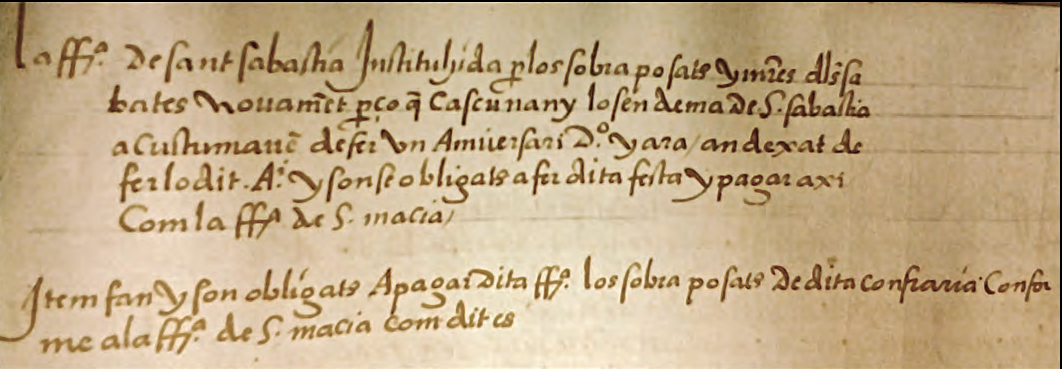 la ff.ª De sant sabastia Instituhida p los sobra posats y mr̃es dls̃ sa
bates Nouamẽt p ço q̃ Cascun any lo sen dema De S. sabastia
a Custumauẽ de fer vn Aniuersari D.º y ara / an dexat de
fer lo dit. A.ri y son se obligats a fer dita festa y pagar axi
Com la ff.ª de S. macia /
Item fan y son obligats A pagar Dita ff.ª los sobra posats De dita confraria Confor
me a la ff.ª de S. macia Com dit es